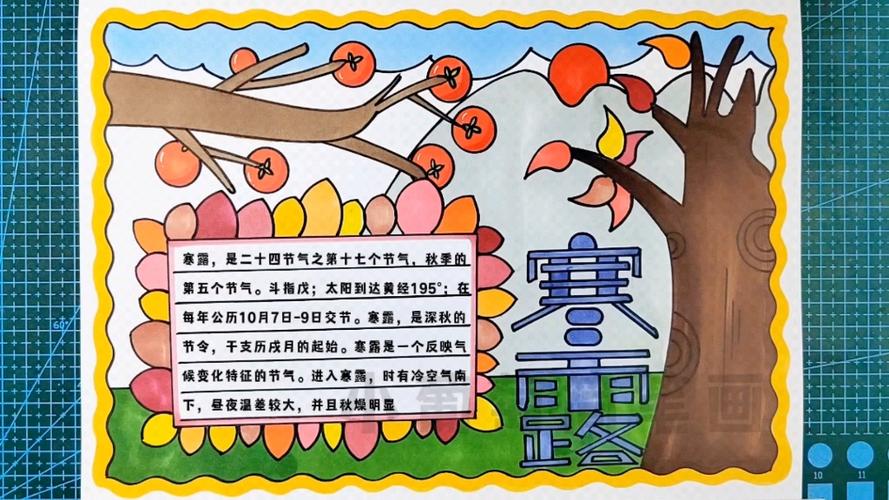 寒露，是二十四节气之第十七个节气，秋季的
第五个节气。斗指戊；太阳到达黄经195°；在
每年公历10月7日-9日交节。寒露，是深秋的
节令，干支历戌月的起始。寒露是一个反映气
候变化特征的节气。进入寒露，时有冷空气南
下，昼夜温差较大，并且秋燥明显
寒露
60°
10
11